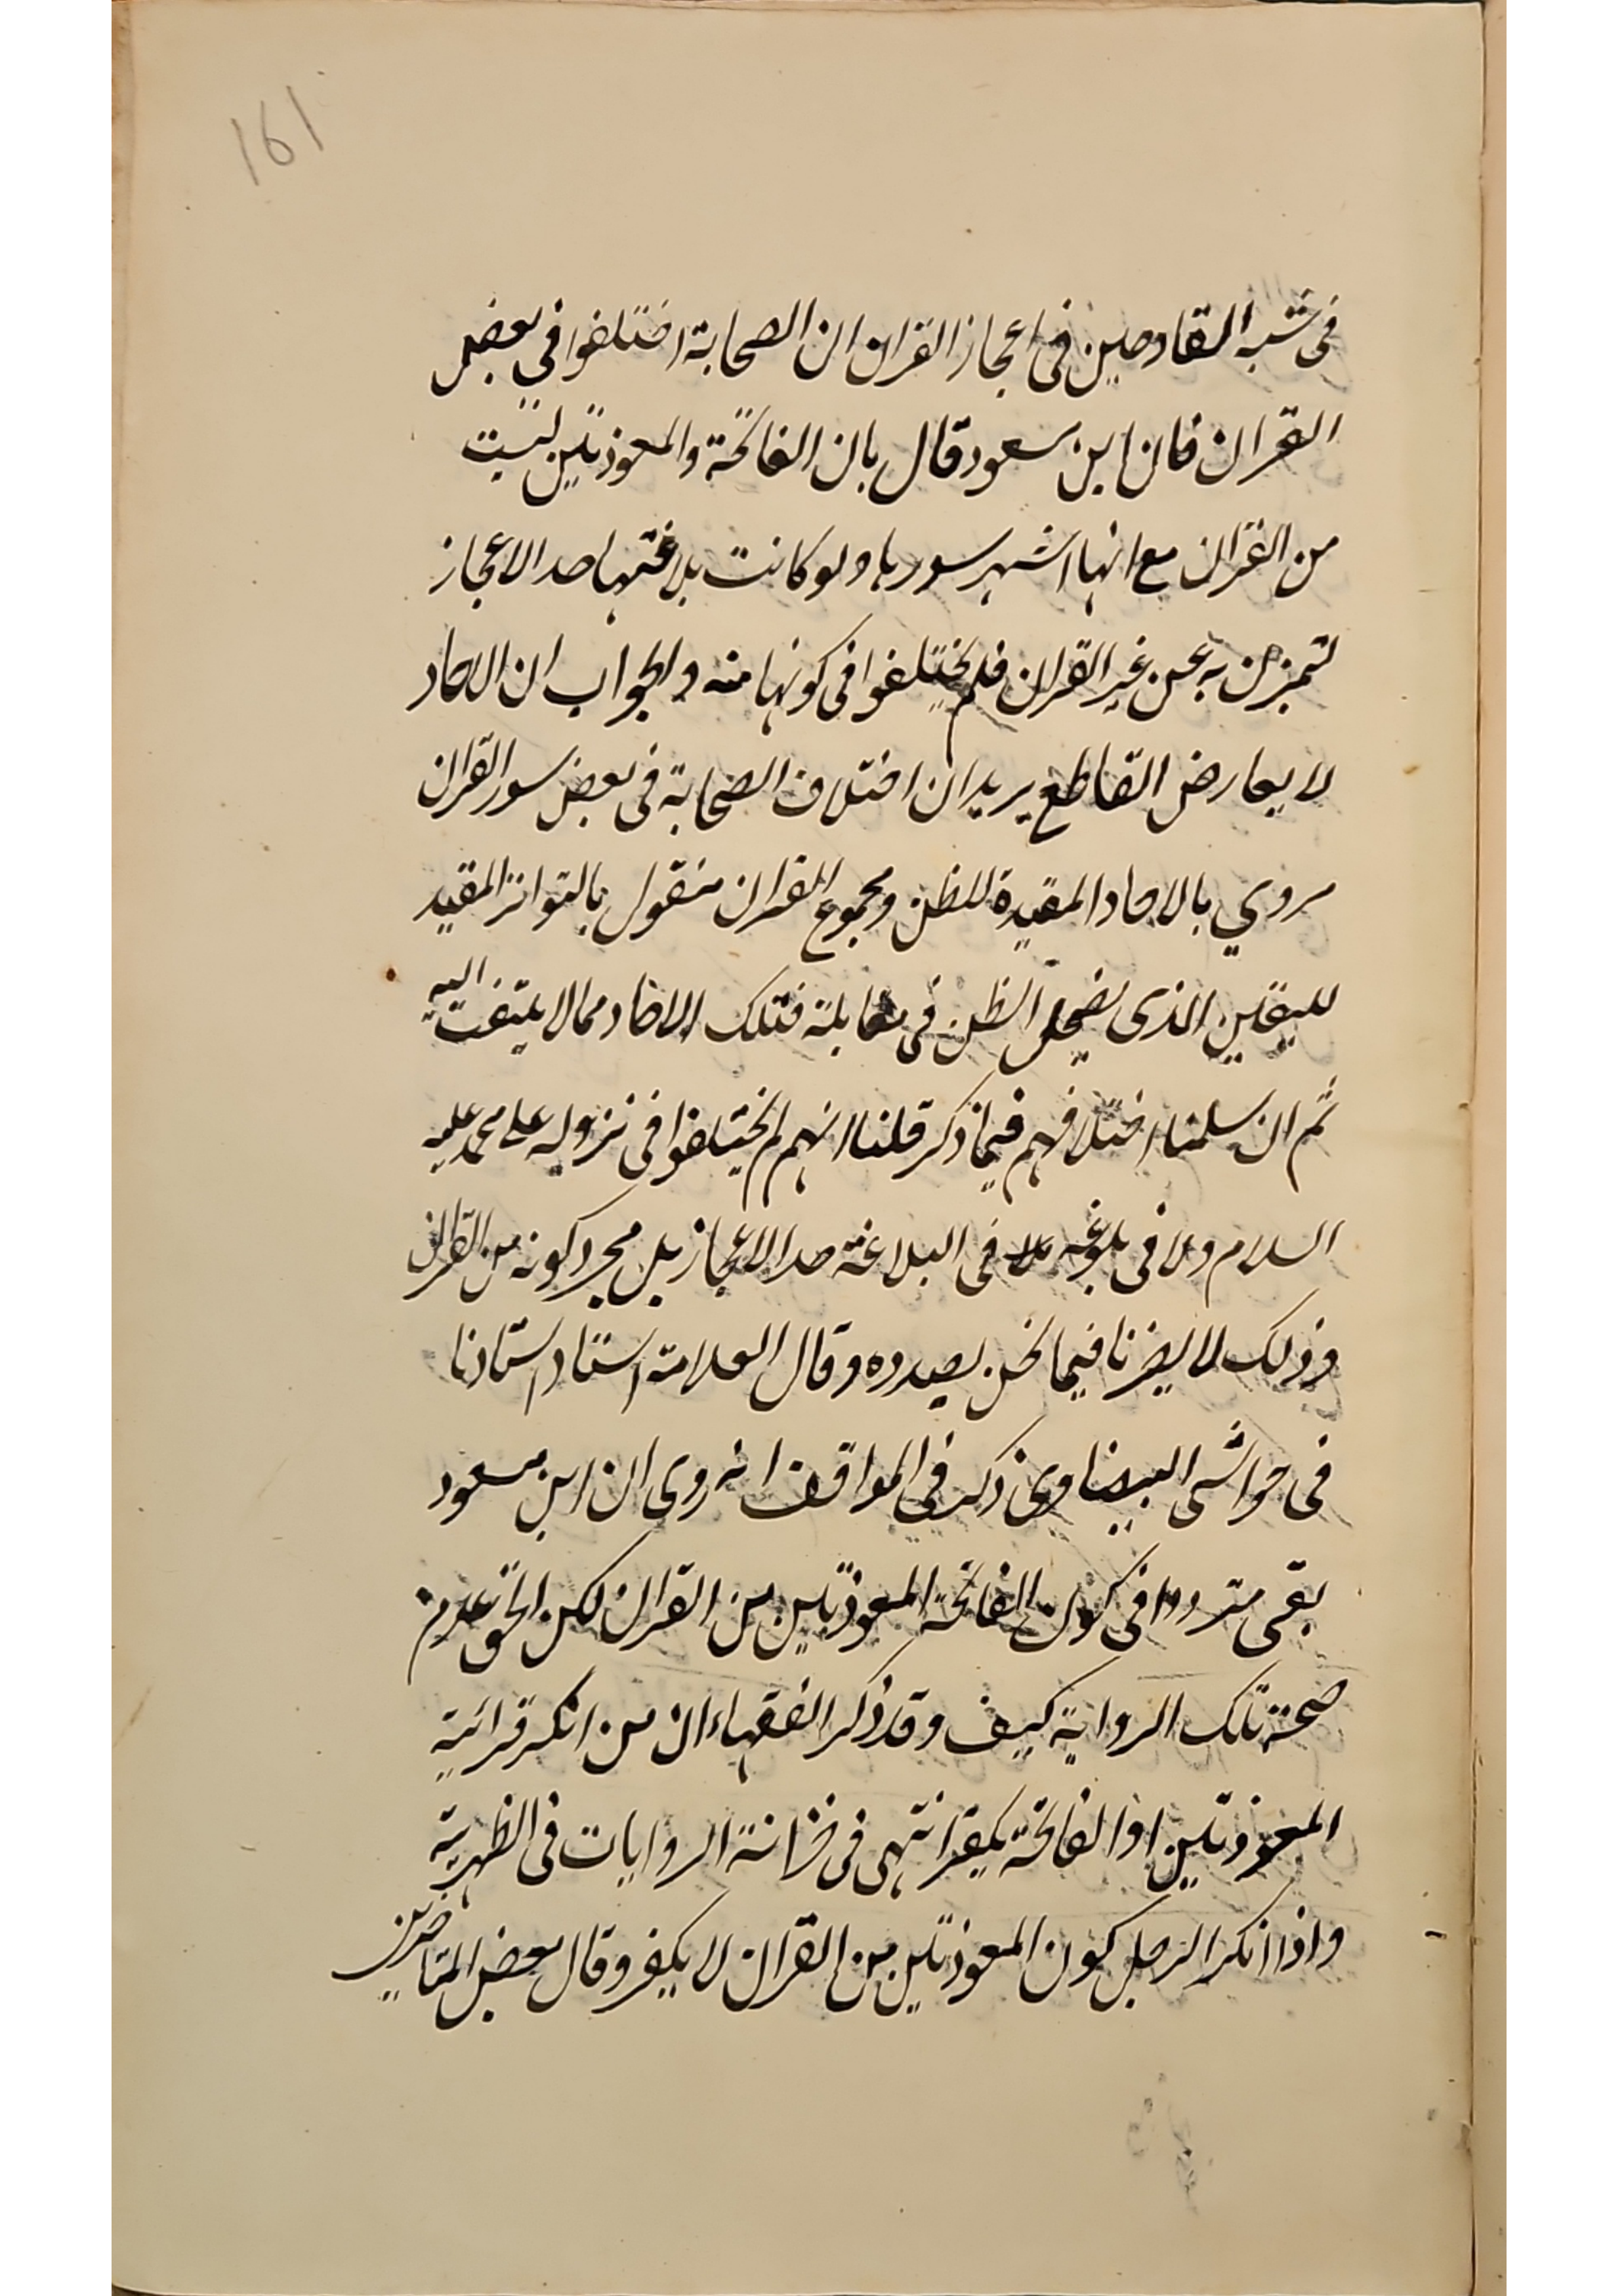 161
فى شبه القادحين فى اعجاز القران ان الصحابة اختلفوا فى بعض
القران فان ابن مسعود قال بان الفاتحة والمعوذتين ليست
من القران مع انها اشهر سورها ولو كانت بلاغتها حد الاعجاز
لتميزت به عن غير القران فلم يختلفوا فى كونها منه والجواب ان الاحاد
لا يعارض القاطع يريد ان اختلاف الصحابة فى بعض سور القران
مروي بالاحاد المفيدة للظن ومجموع القران منقول بالتواتر المفيد
لليقين الذى يضمحل الظن فى مقابلته فتلك الاحاد مما لا يلتفت اليه
ثم ان سلمنا اختلافهم فيما ذكر قلنا انهم لم يختلفوا فى نزوله على محمد عليه
السلام ولا فى بلوغه فى البلاغة حد الاعجاز بل مجرد كونه من القران
وذلك لا يضرنا فيما نحن بصدده وقال العلامة استاد استادنا
فى حواشى البيضاوى ذكر فى المواقف انه روى ان ابن مسعود
بقى مترددا فى كون الفاتحة المعوذتين من القران لكن الحق عدم
صحة تلك الرواية كيف وقد ذكر الفقهاء ان من انكر قرائية
المعوذتين او الفاتحة يكفر انتهى فى خزانة الروايات فى الظهرية
واذا انكر الرجل كون المعوذتين من القران لا يكفر وقال بعض المتاخرين